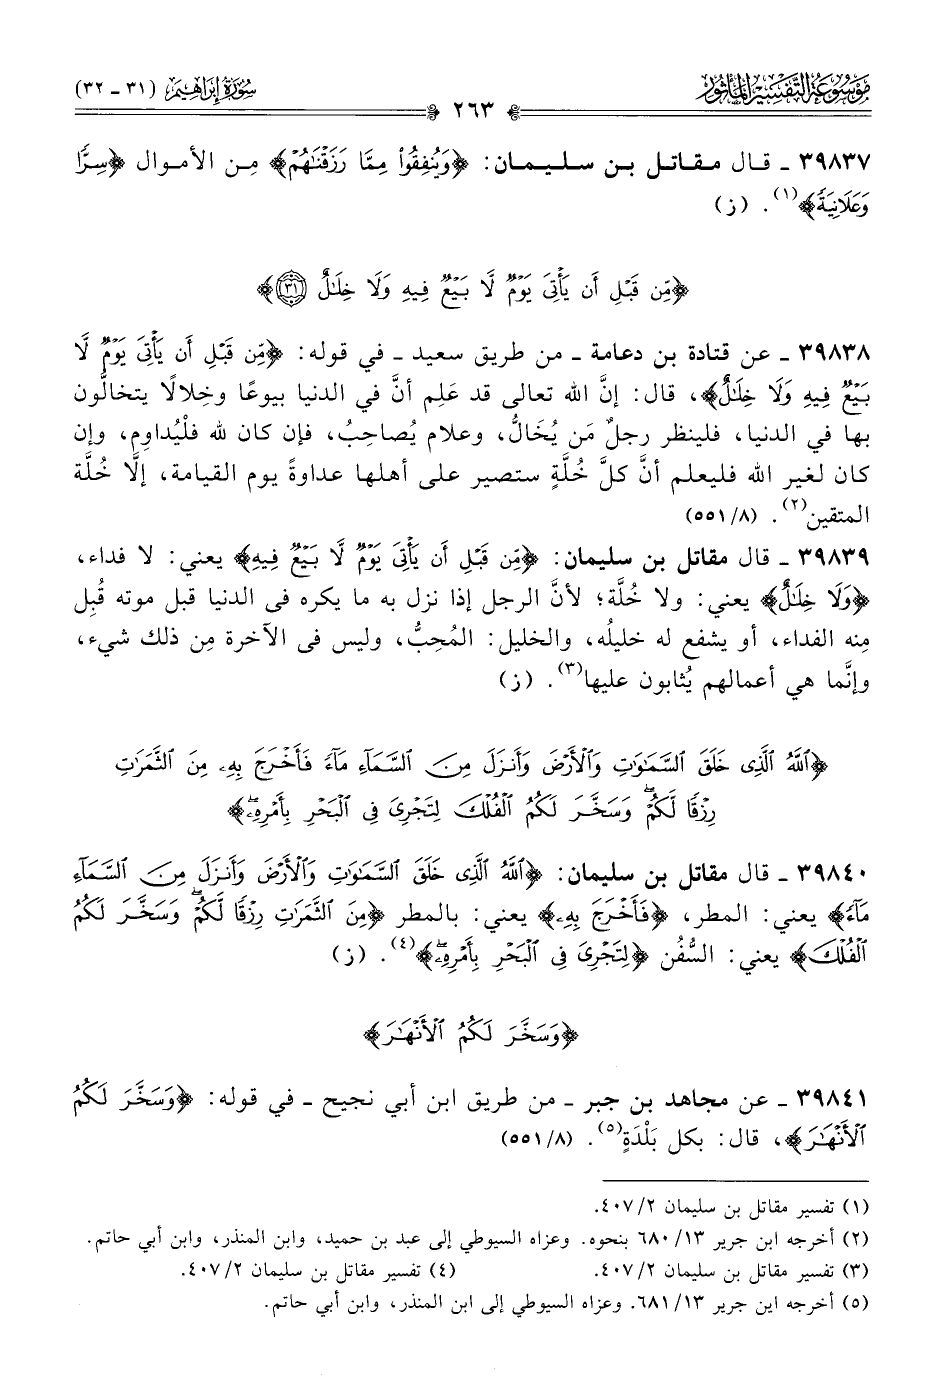 موسوعة التفسير المأثور
سورة إبراهيم (٣١ ـ ٣٢)
٢٦٣
٣٩٨٣٧ ـ قال مقاتل بن سليمان: ﴿وَيُنفِقُواْ مِمَّا رَزَقْنَٰهُمْ﴾ مِن الأموال ﴿سِرًّا
وَعَلَانِيَةً﴾(١). (ز)
﴿مِّن قَبْلِ أَن يَأْتِىَ يَوْمٌ لَّا بَيْعٌ فِيهِ وَلَا خِلَٰلٌ ٣١﴾
٣٩٨٣٨ ـ عن قتادة بن دعامة ـ من طريق سعيد ـ في قوله: ﴿مِّن قَبْلِ أَن يَأْتِىَ يَوْمٌ لَّا
بَيْعٌ فِيهِ وَلَا خِلَٰلٌ﴾، قال: إنَّ الله تعالى قد عَلِم أنَّ في الدنيا بيوعًا وخِلالًا يتخالُّون
بها في الدنيا، فلينظر رجلٌ مَن يُخَالُّ، وعلام يُصاحِبُ، فإن كان لله فلْيُداوِم، وإن
كان لغير الله فليعلم أنَّ كلَّ خُلَّةٍ ستصير على أهلها عداوةً يوم القيامة، إلَّا خُلَّة
المتقين(٢). (٨/ ٥٥١)
٣٩٨٣٩ ـ قال مقاتل بن سليمان: ﴿مِّن قَبْلِ أَن يَأْتِىَ يَوْمٌ لَّا بَيْعٌ فِيهِ﴾ يعني: لا فداء،
﴿وَلَا خِلَٰلٌ﴾ يعني: ولا خُلَّة؛ لأنَّ الرجل إذا نزل به ما يكره فى الدنيا قبل موته قُبِل
مِنه الفداء، أو يشفع له خليلُه، والخليل: المُحِبُّ، وليس فى الآخرة مِن ذلك شيء،
وإنَّما هي أعمالهم يُثابون عليها(٣). (ز)
﴿ٱللَّهُ ٱلَّذِى خَلَقَ ٱلسَّمَٰوَٰتِ وَٱلْأَرْضَ وَأَنزَلَ مِنَ ٱلسَّمَآءِ مَآءً فَأَخْرَجَ بِهِۦ مِنَ ٱلثَّمَرَٰتِ
رِزْقًا لَّكُمْ ۖ وَسَخَّرَ لَكُمُ ٱلْفُلْكَ لِتَجْرِىَ فِى ٱلْبَحْرِ بِأَمْرِهِۦ ۖ﴾
٣٩٨٤٠ ـ قال مقاتل بن سليمان: ﴿ٱللَّهُ ٱلَّذِى خَلَقَ ٱلسَّمَٰوَٰتِ وَٱلْأَرْضَ وَأَنزَلَ مِنَ ٱلسَّمَآءِ
مَآءً﴾ يعني: المطر، ﴿فَأَخْرَجَ بِهِۦ﴾ يعني: بالمطر ﴿مِنَ ٱلثَّمَرَٰتِ رِزْقًا لَّكُمْ ۖ وَسَخَّرَ لَكُمُ
ٱلْفُلْكَ﴾ يعني: السُّفُن ﴿لِتَجْرِىَ فِى ٱلْبَحْرِ بِأَمْرِهِۦ ۖ﴾(٤). (ز)
﴿وَسَخَّرَ لَكُمُ ٱلْأَنْهَٰرَ﴾
٣٩٨٤١ ـ عن مجاهد بن جبر ـ من طريق ابن أبي نجيح ـ في قوله: ﴿وَسَخَّرَ لَكُمُ
ٱلْأَنْهَٰرَ﴾، قال: بكل بَلْدَةٍ(٥). (٨/ ٥٥١)
(١) تفسير مقاتل بن سليمان ٢/ ٤٠٧.
(٢) أخرجه ابن جرير ١٣/ ٦٨٠ بنحوه. وعزاه السيوطي إلى عبد بن حميد، وابن المنذر، وابن أبي حاتم.
(٣) تفسير مقاتل بن سليمان ٢/ ٤٠٧. (٤) تفسير مقاتل بن سليمان ٢/ ٤٠٧.
(٥) أخرجه ابن جرير ١٣/ ٦٨١. وعزاه السيوطي إلى ابن المنذر، وابن أبي حاتم.